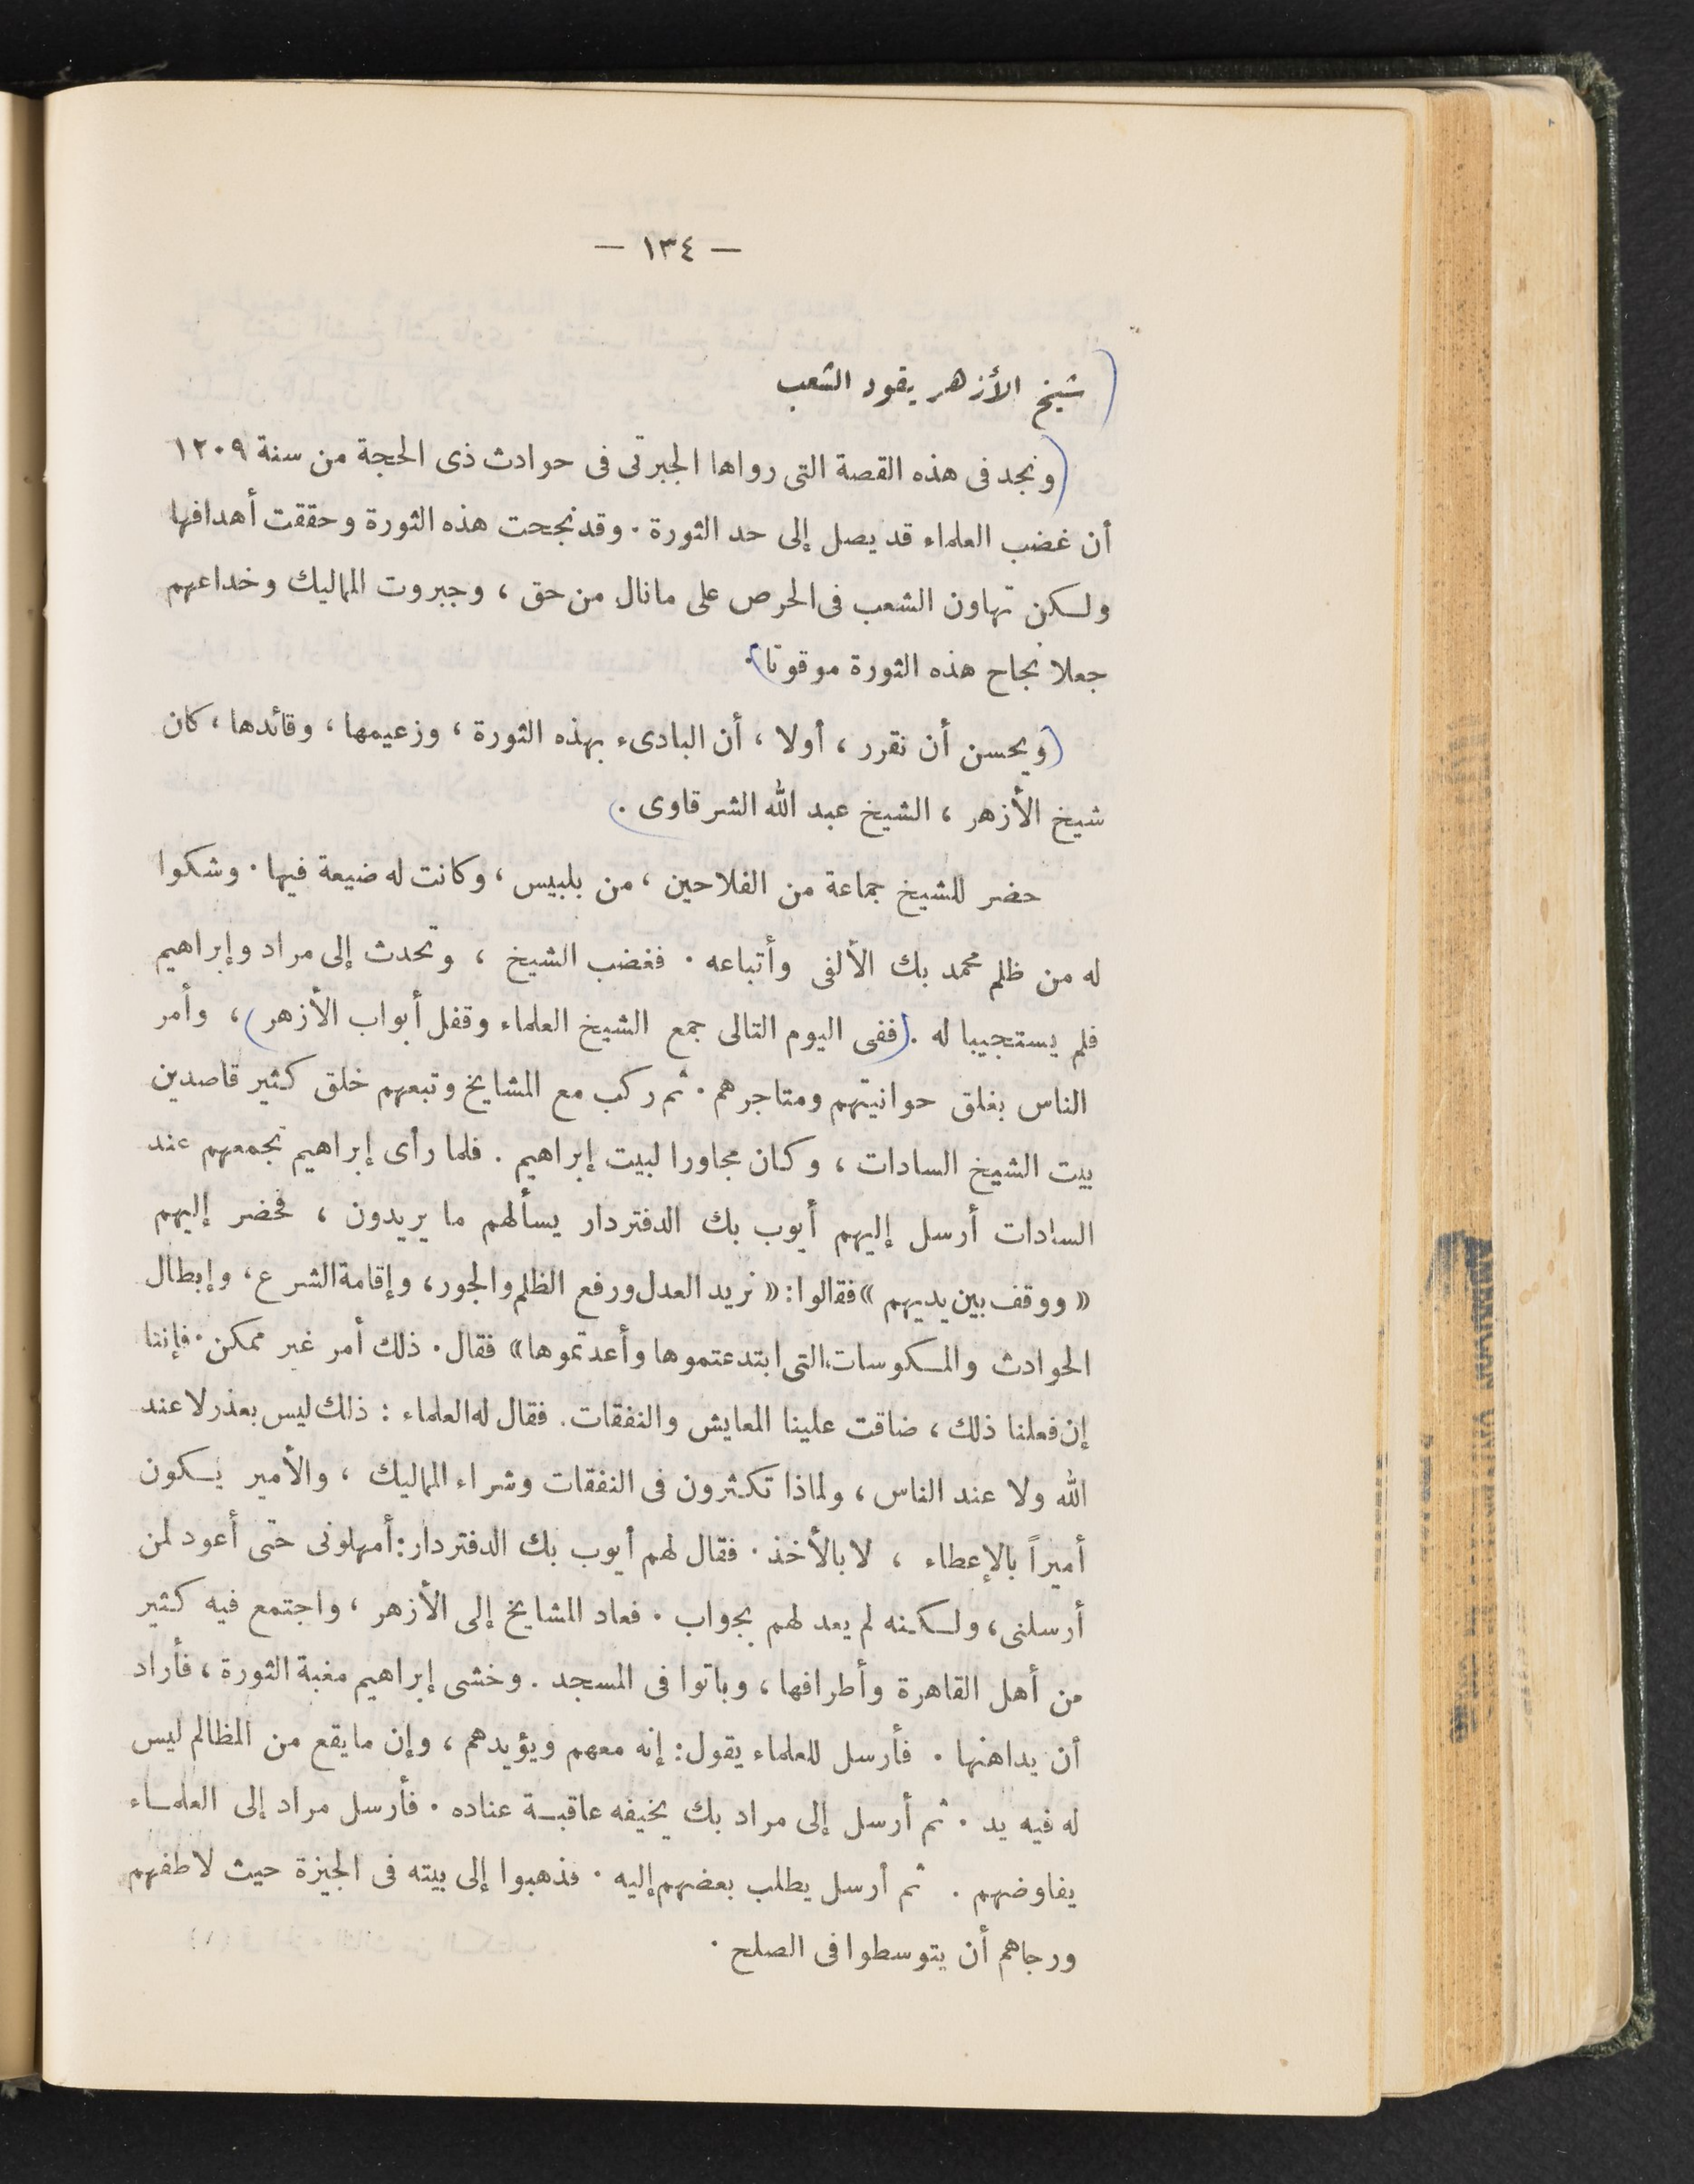 — ١٣٤ —
شيخ الأزهر يقود الشعب
ونجد فى هذه القصة التى رواها الجبرتى فى حوادث ذى الحجة من سنة ١٢٠٩
أن غضب العلماء قد يصل إلى حد الثورة . وقد نجحت هذه الثورة وحققت أهدافها
ولكن تهاون الشعب فى الحرص على مانال من حق ، وجبروت المماليك وخداعهم
جعلا نجاح هذه الثورة موقوتا .
ويحسن أن نقرر ، أولا ، أن البادىء بهذه الثورة ، وزعيمها ، وقائدها ، كان
شيخ الأزهر ، الشيخ عبد الله الشرقاوى .
حضر للشيخ جماعة من الفلاحين ، من بلبيس ، وكانت له ضيعة فيها . وشكوا
له من ظلم محمد بك الألفى وأتباعه . فغضب الشيخ ، وتحدث إلى مراد وإبراهيم
فلم يستجيبا له . ففى اليوم التالى جمع الشيخ العلماء وقفل أبواب الأزهر ، وأمر
الناس بغلق حوانيتهم ومتاجرهم . ثم ركب مع المشايخ وتبعهم خلق كثير قاصدين
بيت الشيخ السادات ، وكان مجاورا لبيت إبراهيم . فلما رأى إبراهيم تجمعهم عند
السادات أرسل إليهم أيوب بك الدفتردار يسألهم ما يريدون ، فحضر إليهم
« ووقف بين يديهم » فقالوا : « نريد العدل ورفع الظلم والجور ، وإقامة الشرع ، وإبطال
الحوادث والمكوسات التى ابتدعتموها وأعدتموها » فقال . ذلك أمر غير ممكن . فإننا
إن فعلنا ذلك ، ضاقت علينا المعايش والنفقات . فقال له العلماء : ذلك ليس بعذر لا عند
الله ولا عند الناس ، ولماذا تكثرون فى النفقات وشراء المماليك ، والأمير يكون
أميراً بالإعطاء ، لا بالأخذ . فقال لهم أيوب بك الدفتردار : أمهلونى حتى أعود لمن
أرسلنى ، ولكنه لم يعد لهم بجواب . فعاد المشايخ إلى الأزهر ، واجتمع فيه كثير
من أهل القاهرة وأطرافها ، وباتوا فى المسجد . وخشى إبراهيم مغبة الثورة ، فأراد
أن يداهنها . فأرسل للعلماء يقول : إنه معهم ويؤيدهم ، وإن مايقع من المظالم ليس
له فيه يد . ثم أرسل إلى مراد بك يخيفه عاقبة عناده . فأرسل مراد إلى العلماء
يفاوضهم . ثم أرسل يطلب بعضهم إليه . فذهبوا إلى بيته فى الجيزة حيث لاطفهم
ورجاهم أن يتوسطوا فى الصلح .